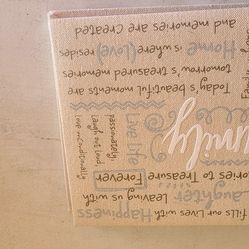 Happiness
fills our Lives with
Laughter
leaving us with
Forever
ories to Treasure
Live life
passionately
laugh out loud
love unconditionally
Today's beautiful moments are
tomorrow's treasured memories
Home is where (love) resides
and memories are created